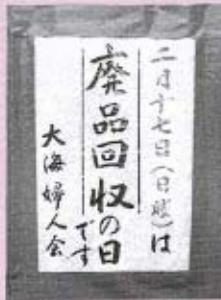 二月十七日(日曜)は
廃品回収の日
です
大海婦人会